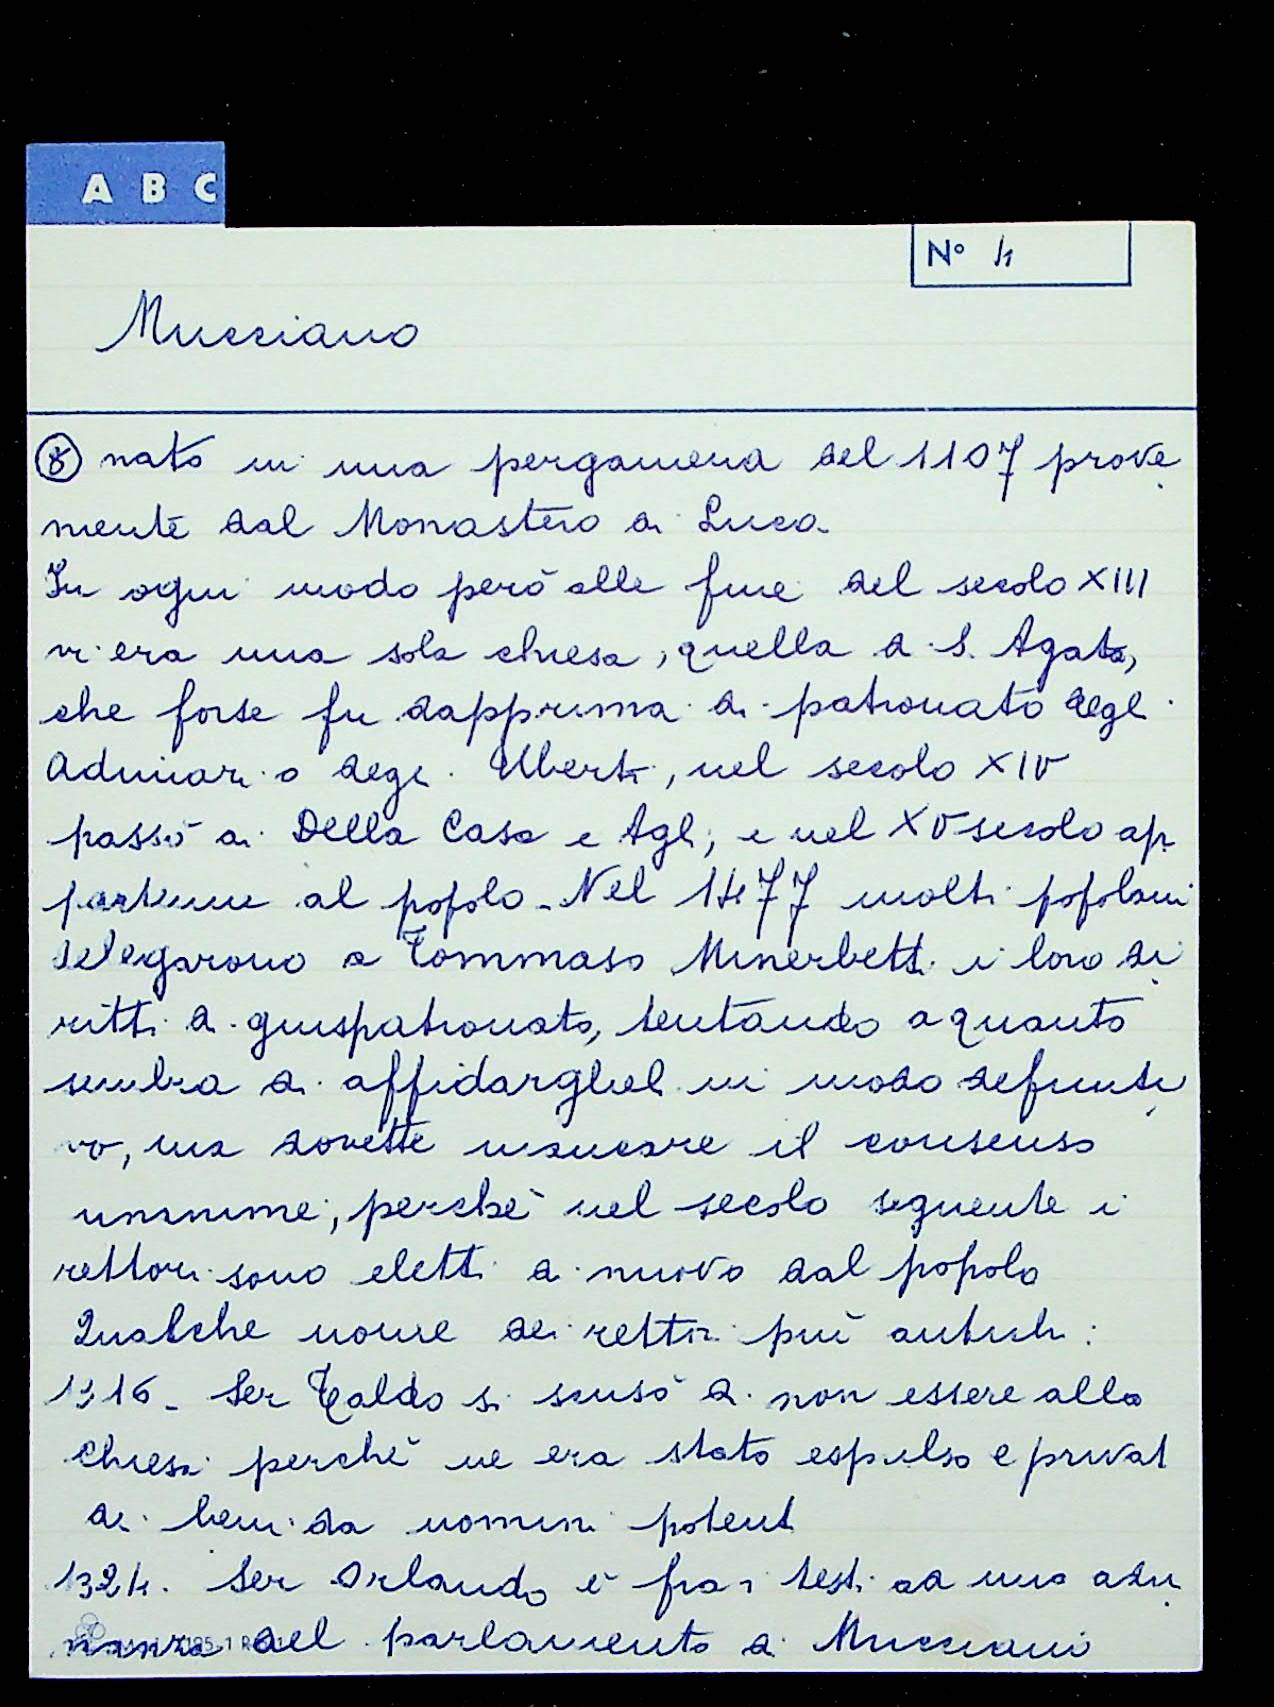 A B C
N° 4
Mucciano
⑧ nato in una pergamena del 1107 prove
niente dal Monastero di Luco.
In ogni modo però alle fine del secolo XIII
vi era una sola chiesa, quella di S. Agata,
che forse fu dapprima di patronato degli
Adimari o degli Uberti, nel secolo XIV
passò ai Della Casa e Agli; e nel XV secolo ap
partenne al popolo. Nel 1477 molti popolani
delegarono a Tommaso Minerbetti i loro di
ritti di giuspatronato, tentando a quanto
sembra di affidarglieli in modo definiti
vo, ma dovette mancare il consenso
unanime, perchè nel secolo seguente i
rettori sono eletti di nuovo dal popolo
Qualche nome dei rettori più antichi:
1316 - Ser Taldo si scusò di non essere alla
chiesa perchè ne era stato espulso e privato
dei beni da uomini potenti
1324. Ser Orlando è fra i testi ad una adu
nanza del parlamento di Mucciano